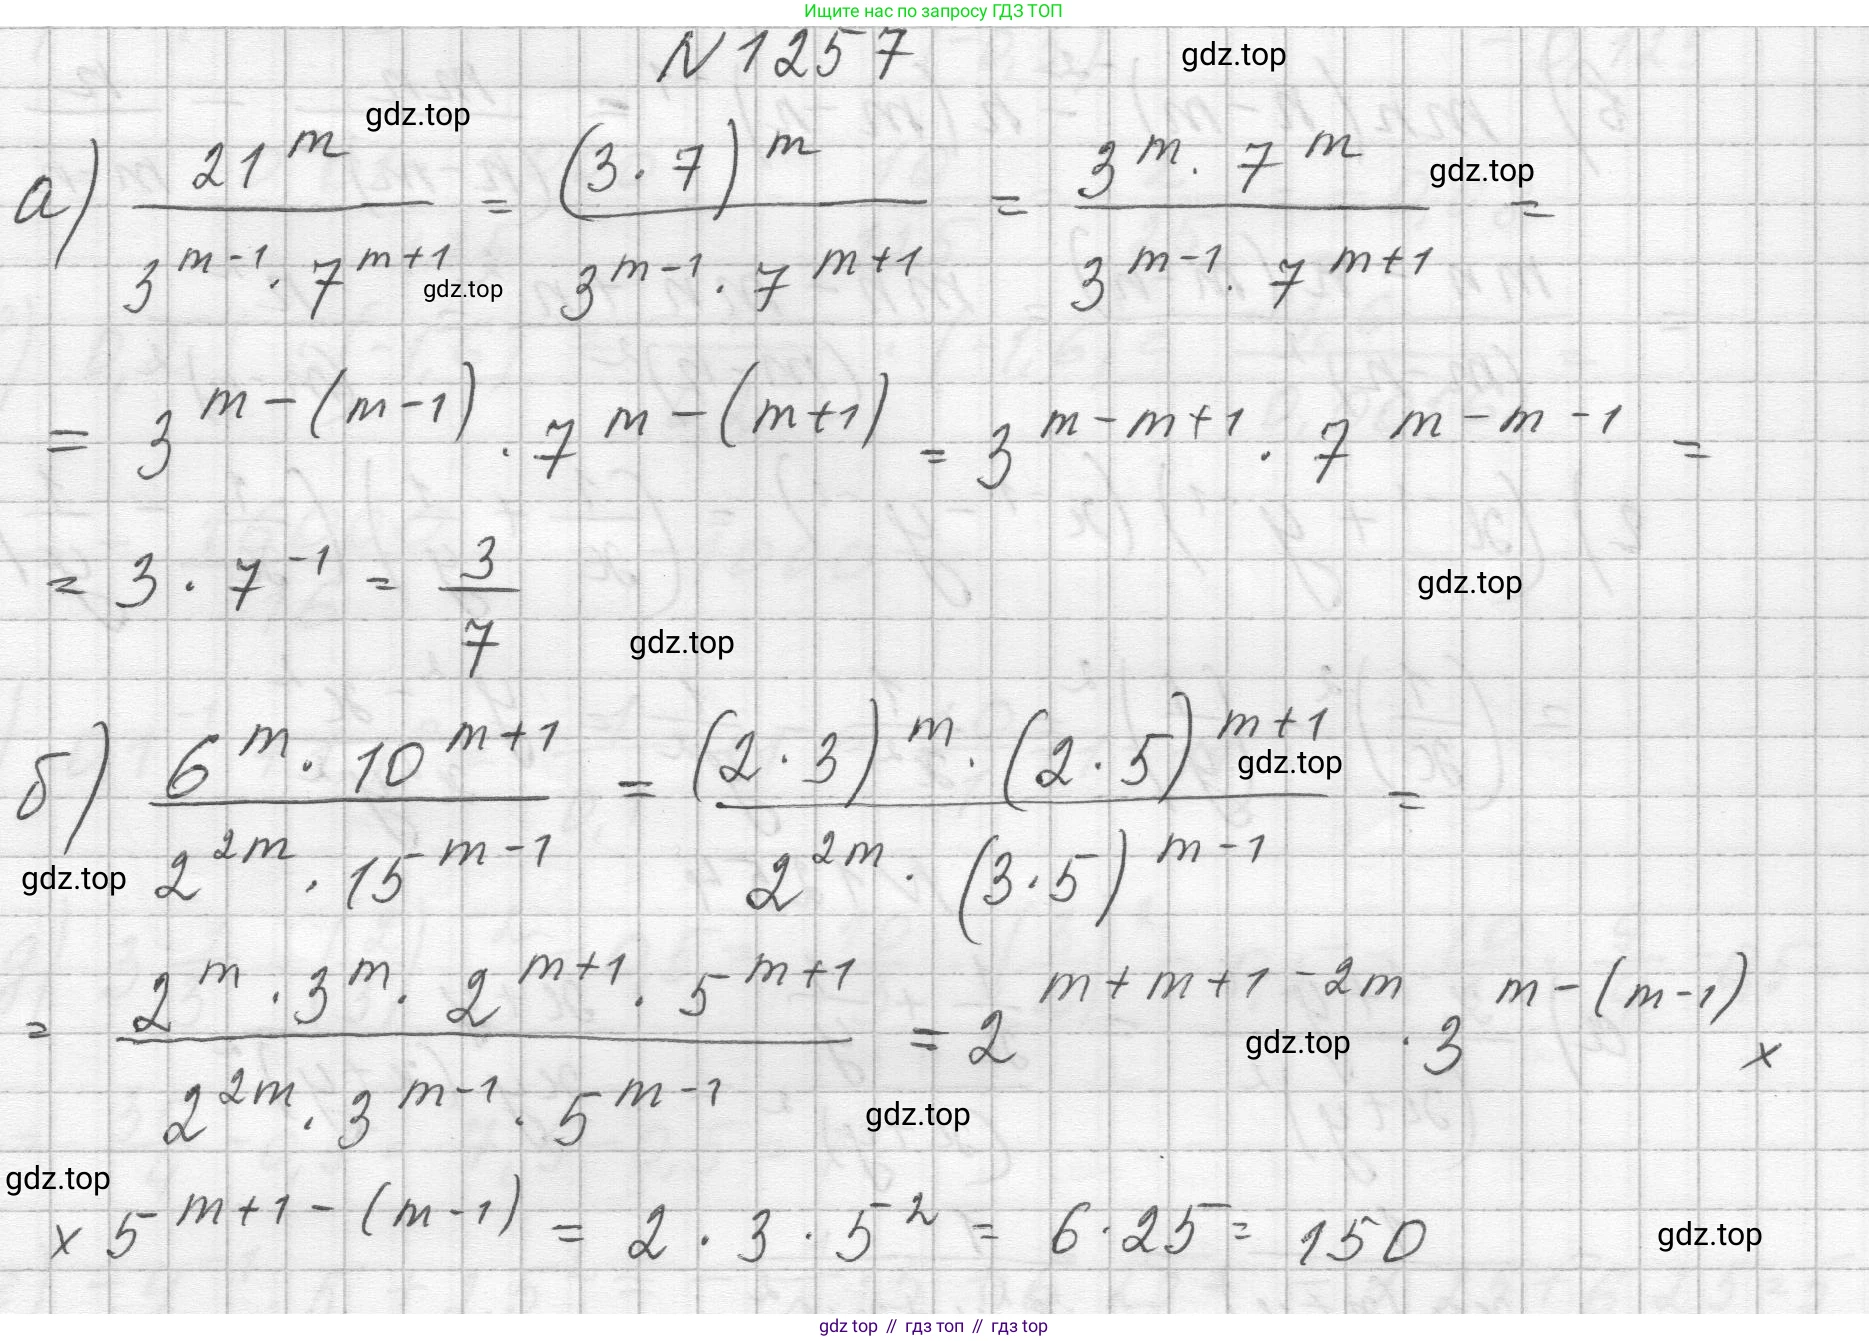 Ищите нас по запросу ГДЗ ТОП
N 1257
gdz.top
gdz.top
а) 21^m / (3^(m-1) · 7^(m+1)) = (3 · 7)^m / (3^(m-1) · 7^(m+1)) = (3^m · 7^m) / (3^(m-1) · 7^(m+1)) =
gdz.top
gdz.top
= 3^(m-(m-1)) · 7^(m-(m+1)) = 3^(m-m+1) · 7^(m-m-1) =
= 3 · 7^(-1) = 3/7
gdz.top
gdz.top
б) (6^m · 10^(m+1)) / (2^(2m) · 15^(m-1)) = ((2 · 3)^m · (2 · 5)^(m+1)) / (2^(2m) · (3 · 5)^(m-1)) =
gdz.top
gdz.top
= (2^m · 3^m · 2^(m+1) · 5^(m+1)) / (2^(2m) · 3^(m-1) · 5^(m-1)) = 2^(m+m+1-2m) · 3^(m-(m-1)) ×
gdz.top
gdz.top
gdz.top
× 5^(m+1-(m-1)) = 2 · 3 · 5^2 = 6 · 25 = 150
gdz.top
gdz.top // гдз топ // гдз top